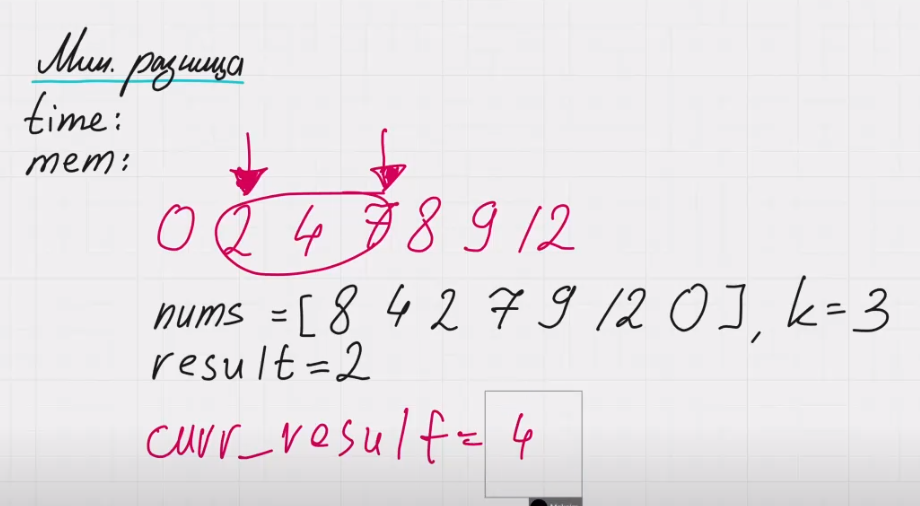 Мин. разница
time:
mem:
0 2 4 7 8 9 12
nums = [ 8 4 2 7 9 12 0 ], k = 3
result = 2
curr_result = 4